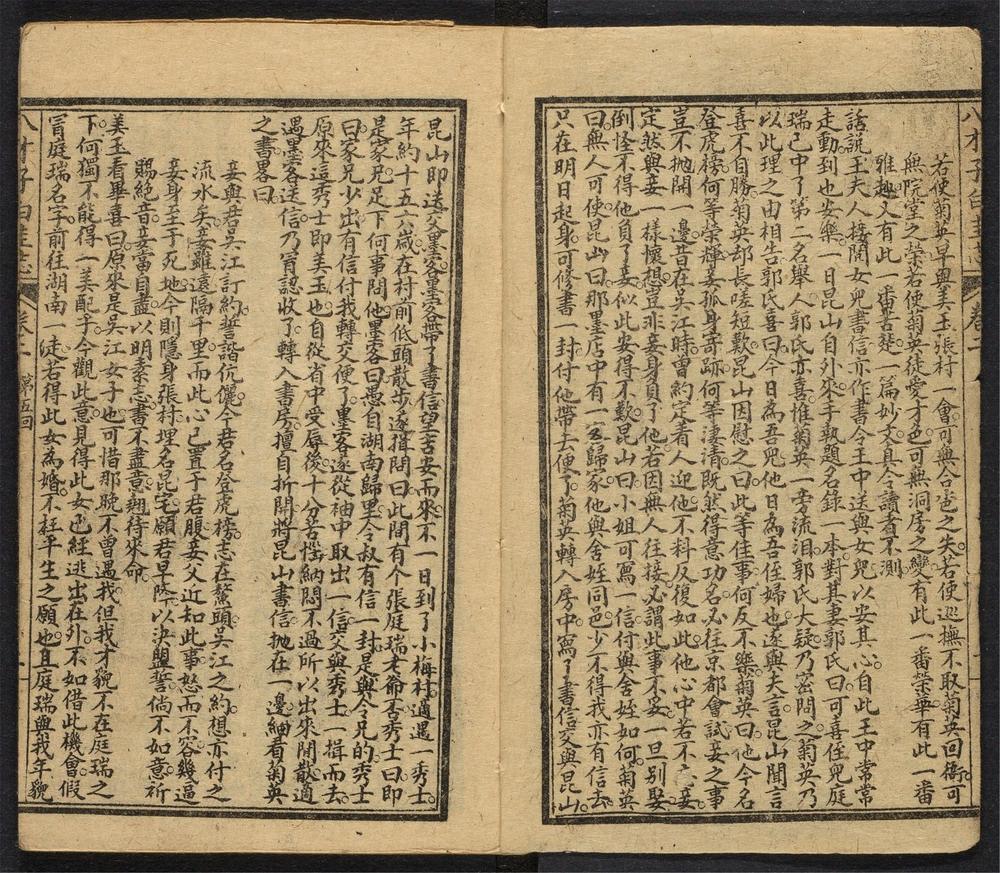 八才子白圭志 卷二
若使菊英早與美玉張村一會可無合巹之失若使巡撫不取菊英回衙可
無院堂之榮若使菊英徒愛才色可無洞房之變有此一番榮華有此一番
雅趣又有此一番苦楚一篇妙文真令讀者不測
話說王夫人接閱女兒書信亦作書令王中送與女兒以安其心自此王中常常
走動到也安樂一日昆山自外來手執題名錄一本對其妻郭氏曰可喜侄兒庭
瑞已中了第二名舉人郭氏亦喜惟菊英一旁流泪郭氏大疑乃密問之菊英乃
以此理之由相告郭氏喜曰今日為吾兒他日為吾侄婦也遂與夫言昆山聞言
喜不自勝菊英却長噓短歎昆山因慰之曰此等佳事何反不樂菊英曰他今名
登虎榜何等榮輝妾孤身寄跡何等淒清既然得意功名必往京都會試妾之事
豈不抛開一邊昔在吳江時曾約定着人迎他不料反復如此他心中若不
定然與妾一樣懷想豈非妾身負了他若因無人往接必謂此事不妥一旦別娶
倒怪不得他負了妾似此安得不歎昆山曰小姐可寫一信付與舍姪如何菊英
曰無人可使昆山曰那墨店中有一客歸家他與舍姪同邑少不得我亦有信去
只在明日起身可修書一封付他帶去便了菊英轉入房中寫了書信交與昆山
昆山即送交墨客墨客帶了書信望吉安而來不一日到了小梅村適遇一秀士
年約十五六歲在村前低頭散步遂揖問曰此間有个張庭瑞老爺否秀士曰即
是家兄足下何事問他墨客曰愚自湖南歸里令叔有信一封是與令兄的秀士
曰家兄少出有信付我轉交便了墨客遂從袖中取出一信交與秀士一揖而去
原來這秀士即美玉也自從省中受辱後十分苦惱納悶不過所以出來閒散適
遇墨客送信乃冒認收了轉入書房擅自折開將昆山書信抛在一邊細看菊英
之書畧曰
妾與君吳江訂約誓諧伉儷今君名登虎榜志在鰲頭吳江之約想亦付之
流水矣妾雖遠隔千里而此心已置于君腹妾父近知此事怒而不容幾逼
妾身至于死地今則隱身張村埋名昆宅願君早降以決盟誓倘不如意祈
賜絕音妾當自盡以明素志書不盡意翹待來命
美玉看畢喜曰原來是吳江女子也可惜那晚不曾遇我但我才貌不在庭瑞之
下何獨不能得一美配乎今觀此意見得此女已經逃出在外不如借此機會假
冒庭瑞名字前往湖南一走若得此女為婚不枉平生之願也且庭瑞與我年貌
八才子白圭志 卷二 第五回